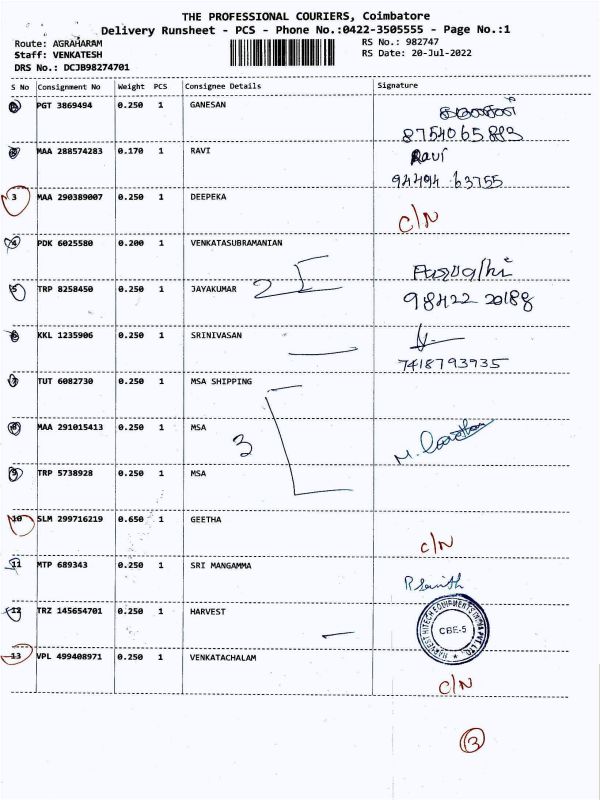 THE PROFESSIONAL COURIERS, Coimbatore
Delivery Runsheet - PCS - Phone No.:0422-3505555 - Page No.:1
Route: AGRAHARAM RS No.: 982747
Staff: VENKATESH RS Date: 20-Jul-2022
DRS No.: DCJB98274701
S No Consignment No Weight PCS Consignee Details Signature
PGT 3869494 0.250 1 GANESAN
8754065883
MAA 288574283 0.170 1 RAVI Ravi
94494 63755
3 MAA 290389007 0.250 1 DEEPEKA C/N
4 PDK 6025580 0.200 1 VENKATASUBRAMANIAN
5 TRP 8258450 0.250 1 JAYAKUMAR 2 98422 20188
6 KKL 1235906 0.250 1 SRINIVASAN
7418793935
7 TUT 6082730 0.250 1 MSA SHIPPING
8 MAA 291015413 0.250 1 MSA 3
9 TRP 5738928 0.250 1 MSA
10 SLM 299716219 0.650 1 GEETHA C/N
11 MTP 689343 0.250 1 SRI MANGAMMA
12 TRZ 145654701 0.250 1 HARVEST HARVEST HITECH EQUIPMENTS INDIA PVT. LTD. CBE-5
13 VPL 499408971 0.250 1 VENKATACHALAM C/N
13